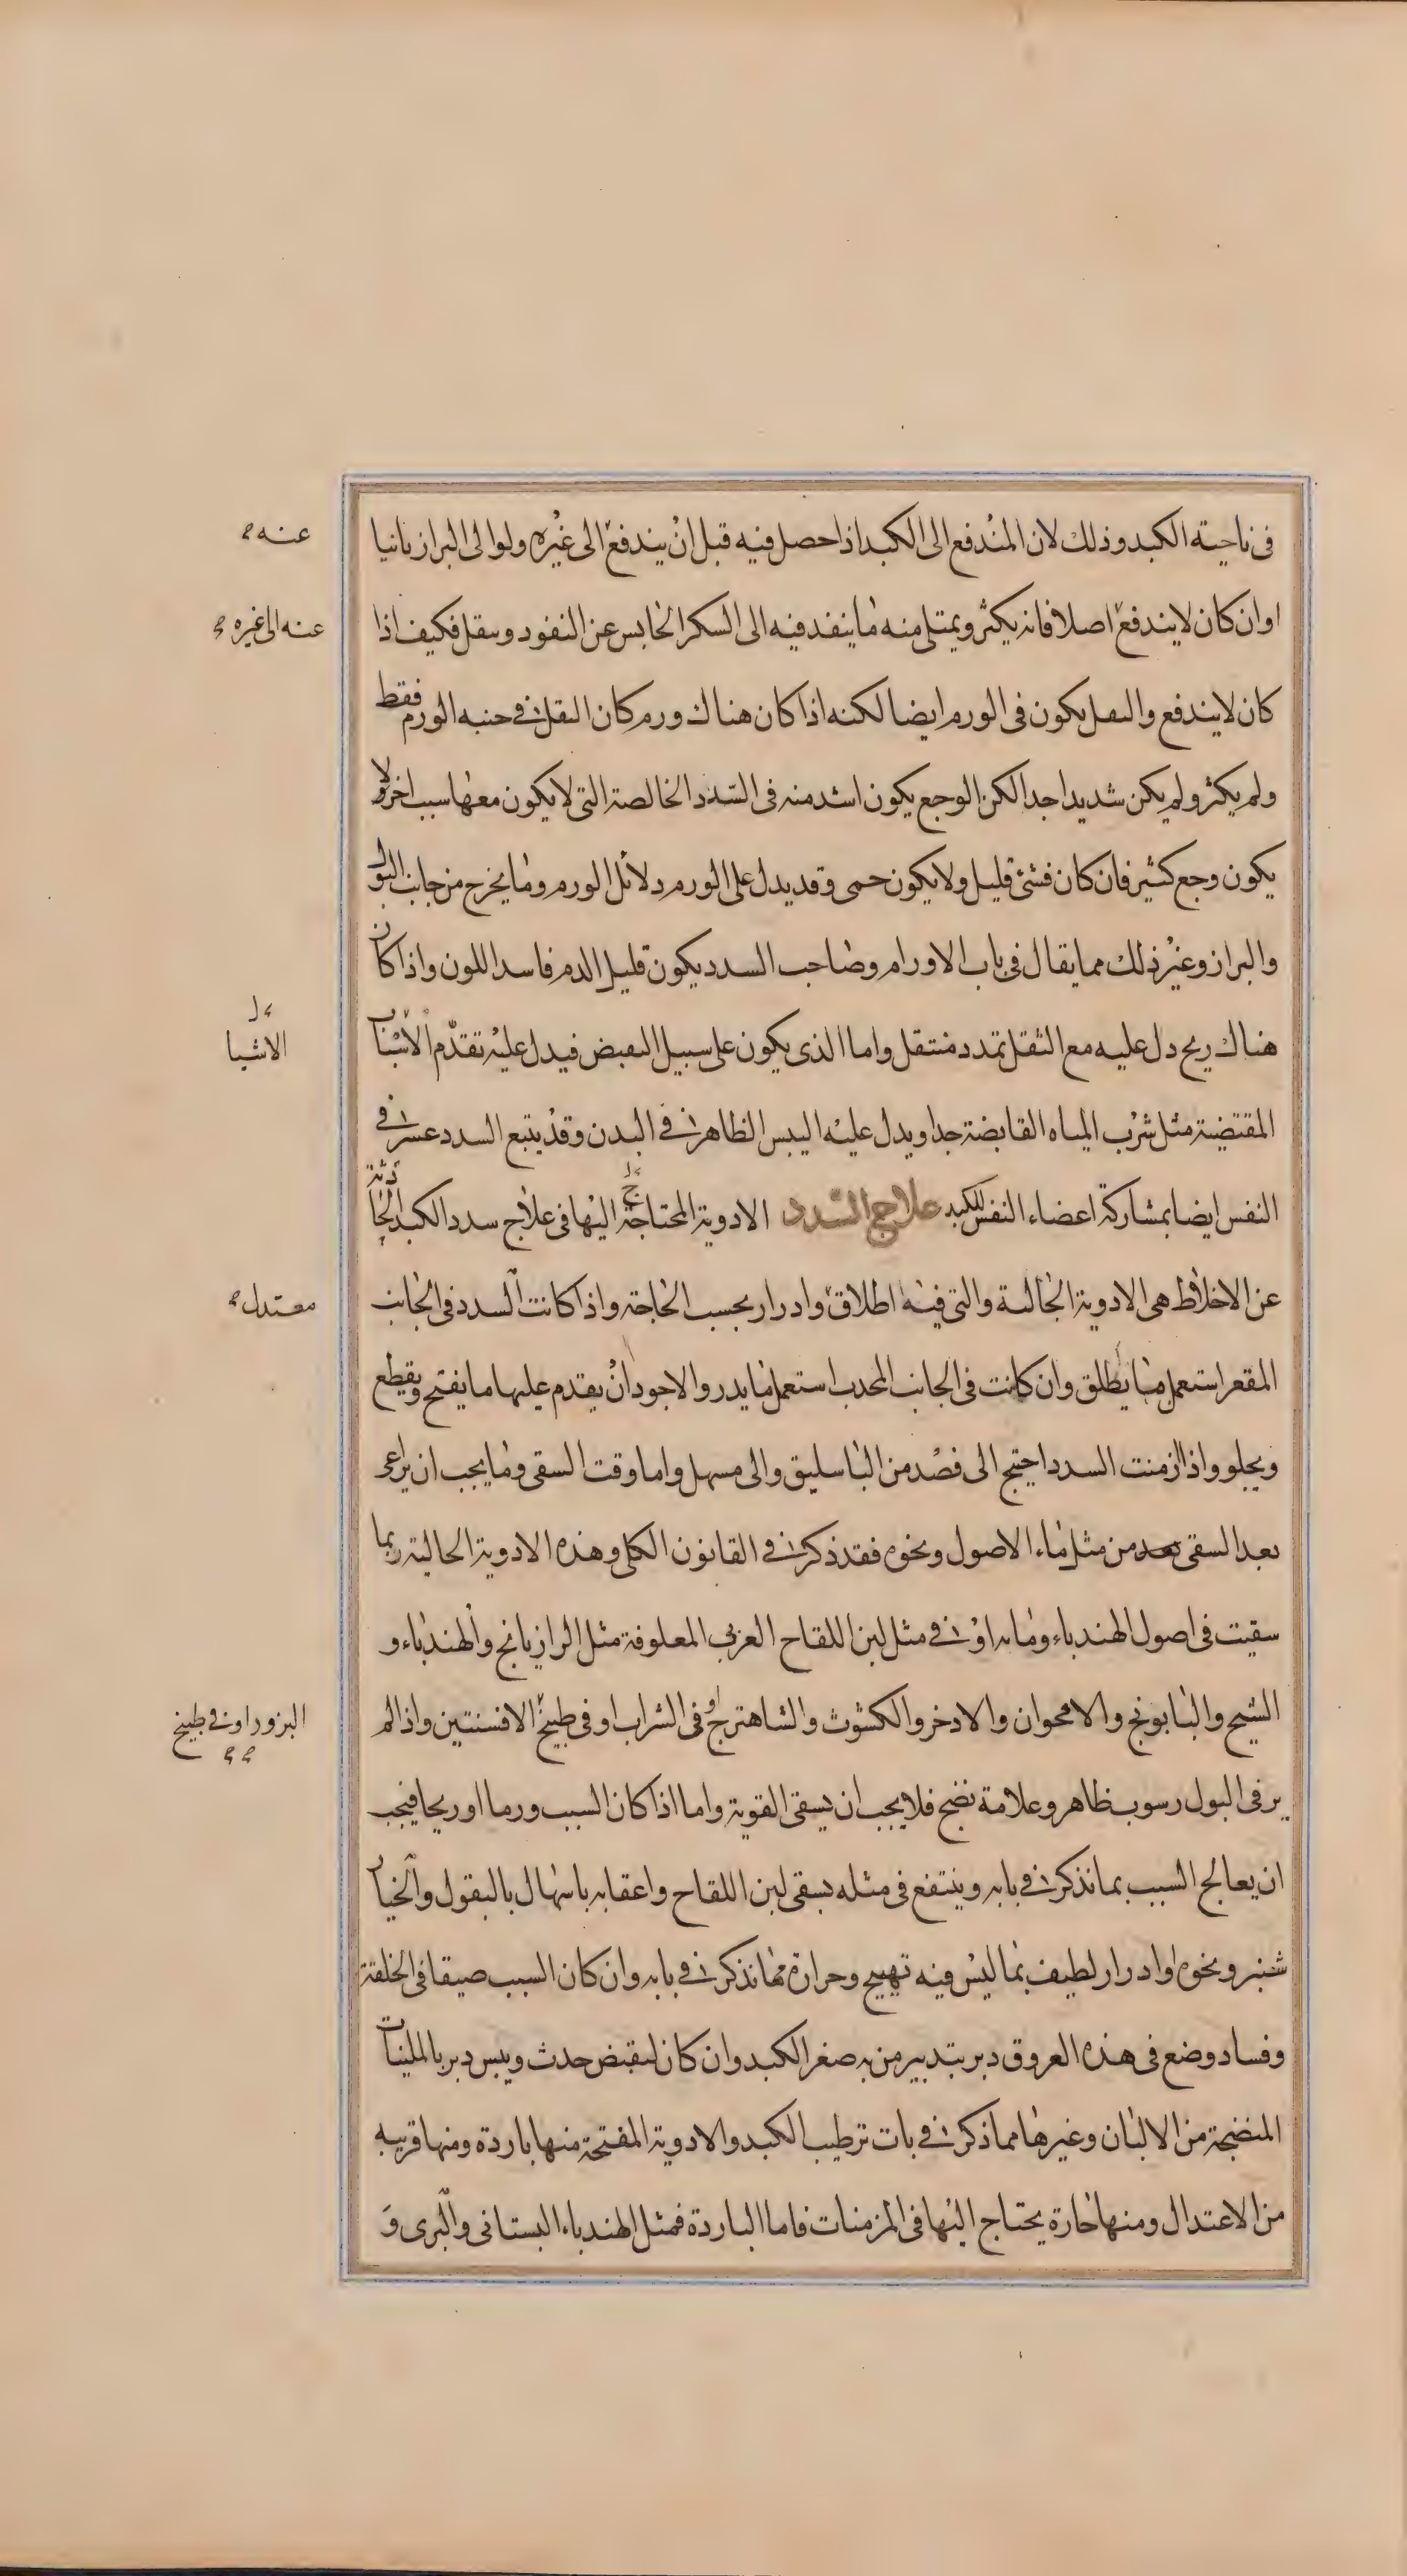 فى ناحية الكبد وذلك لان المندفع الى الكبد اذا حصل فيه قبل ان يندفع الى غيره ولو الى البراز ثانيا
عنه
او ان كان لا يندفع اصلا فانه يكثر ويمتلى منه ما ينفد فيه الى السكر الحابس عن النفود ويثقل فكيف اذا
عنه الى غيره
كان لا يندفع والثقل يكون فى الورم ايضا لكنه اذا كان هناك ورم كان الثقل فى جنبه الورم فقط
ولم يكثر ولم يكن شديدا جدا لكن الوجع يكون اشد منه فى السدد الخالصة التى لا يكون معها سبب اخر ولا
يكون وجع كثير فان كان فشئ قليل ولا يكون حمى وقد يدل على الورم دلائل الورم وما يخرج من جانب البول
والبراز وغير ذلك مما يقال فى باب الاورام وصاحب السدد يكون قليل الدم فاسد اللون واذا كان
هناك ريح دل عليه مع الثقل تمدد منتقل واما الذى يكون على سبيل التقبض فيدل عليه تقدم الاسباب
الاشيا
المقتضية مثل شرب المياه القابضة جدا ويدل عليه اليبس الظاهر فى البدن وقد يتبع السدد عسر فى
النفس ايضا بمشاركة اعضاء النفس للكبد علاج السدد الادوية المحتاجة اليها فى علاج سدد الكبد الحادثة
عن الاخلاط هى الادوية الجالية والتى فيه اطلاق وادرار بحسب الحاجة واذا كانت السدد فى الجانب
معتدل
المقعر استعمل ما يطلق وان كانت فى الجانب المحدب استعمل ما يدر والاجود ان يقدم عليها ما يفتح ويقطع
ويجلو واذا ازمنت السدد احتيج الى فصد من الباسليق والى مسهل واما وقت السقى وما يجب ان يراعى
بعد السقى من مثل ماء الاصول ونحوه فقد ذكر فى القانون الكلى وهذه الادوية الجالية ربما
سقيت فى اصول الهندباء وماىه او فى مثل لبن اللقاح العربى المعلوفة مثل الرازيانج والهندباء و
الشيح والبابونج والاقحوان والادخر والكشوث والشاهترج او فى الشراب او فى طبيخ الافسنتين واذا لم
البزور او فى طبيخ
ير فى البول رسوب ظاهر وعلامة نضج فلا يجب ان يسقى القوية واما اذا كان السبب ورما او ريحا فيجب
ان يعالج السبب بما نذكر فى بابه وينتفع فى مثله بسقى لبن اللقاح واعقابه باسهال بالبقول والخيار
شنبر ونحوه وادرار لطيف بما ليس فيه تهييج وحرارة مما نذكر فى بابه وان كان السبب ضيقا فى الخلقة
وفساد وضع فى هذه العروق دبر بتدبير من به صغر الكبد وان كان لتقبض حدث ويبس دبر بالملينات
المنضجة من الالبان وغيرها مما ذكر فى باب ترطيب الكبد والادوية المفتحة منها باردة ومنها قريبه
من الاعتدال ومنها حارة يحتاج اليها فى المزمنات فاما الباردة فمثل الهندباء البستانى والبرى و